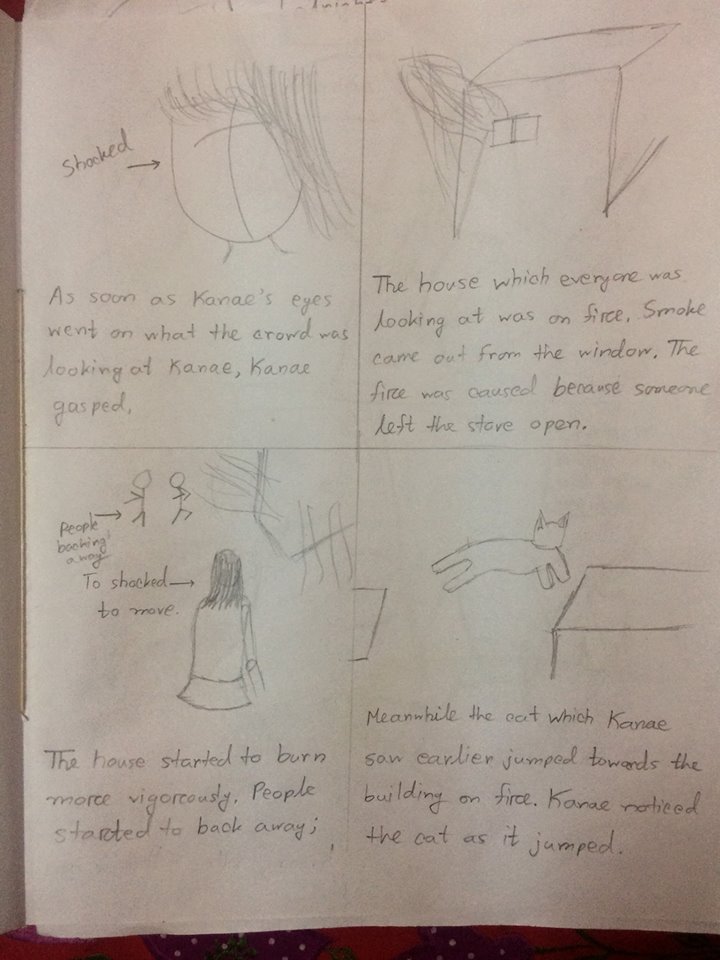 Shocked
As soon as Kanae's eyes
went on what the crowd was
looking at Kanae, Kanae
gasped,
The house which everyone was
looking at was on fire. Smoke
came out from the window. The
fire was caused because someone
left the stove open.
People
backing
away
To shocked
to move.
The house started to burn
more vigorously. People
started to back away;
Meanwhile the cat which Kanae
saw earlier jumped towards the
building on fire. Kanae noticed
the cat as it jumped.